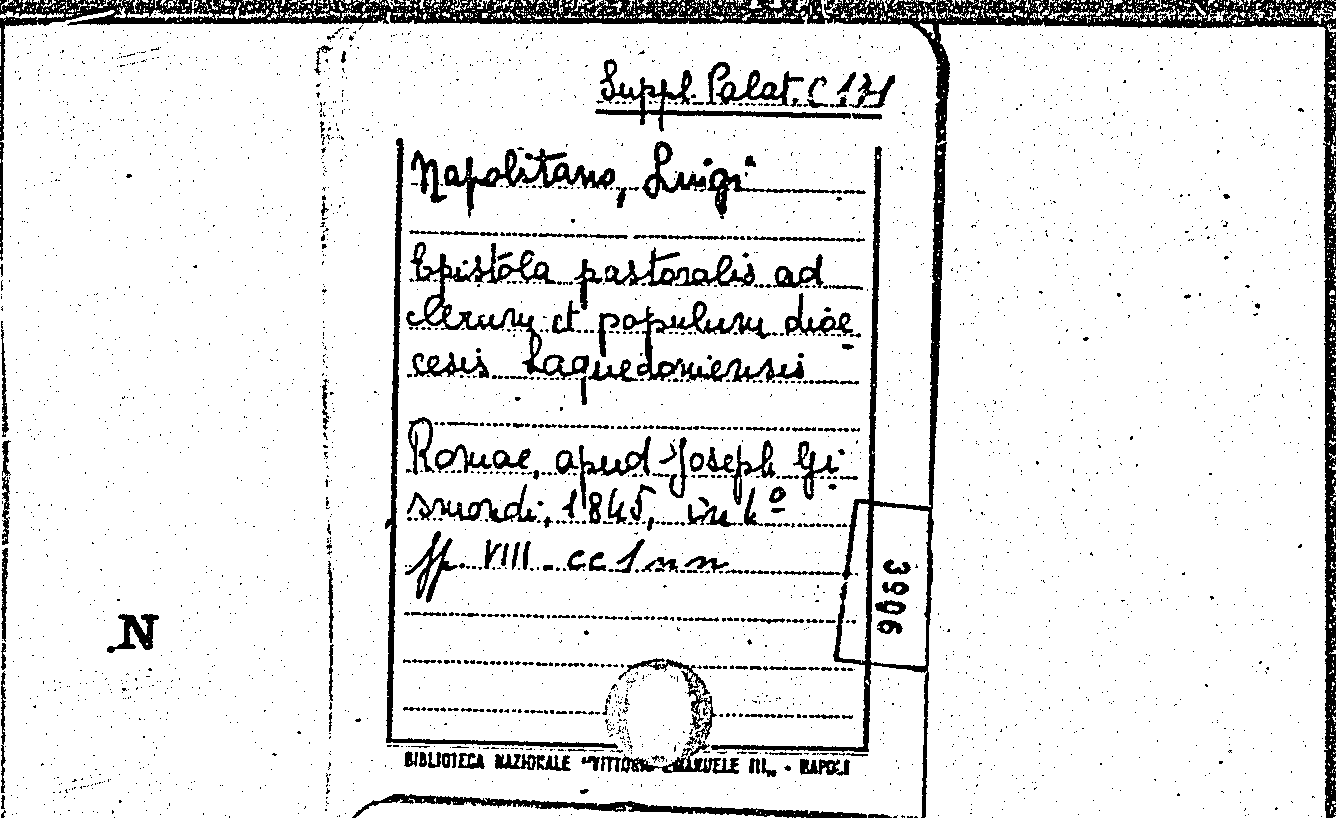 Suppl. Palat. C 171
Napolitano, Luigi
Epistola pastoralis ad
clerum et populum dioe
cesis Laquedoniensis
Romae, apud Joseph Gi
smondi, 1845, in 4º
pp. VIII - cc 1 n n
3906
N
BIBLIOTECA NAZIONALE "VITTORIO EMANUELE III„ - NAPOLI